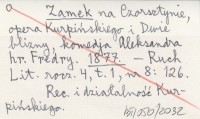 Zamek na Czorsztynie,
opera Kurpińskiego i Dwie
blizny, komedja Aleksandra
hr. Fredry. 1877. — Ruch
Lit. rocz. 4, t. 1, nr 8: 126.
Rec. i działalność Kur-
pińskiego.